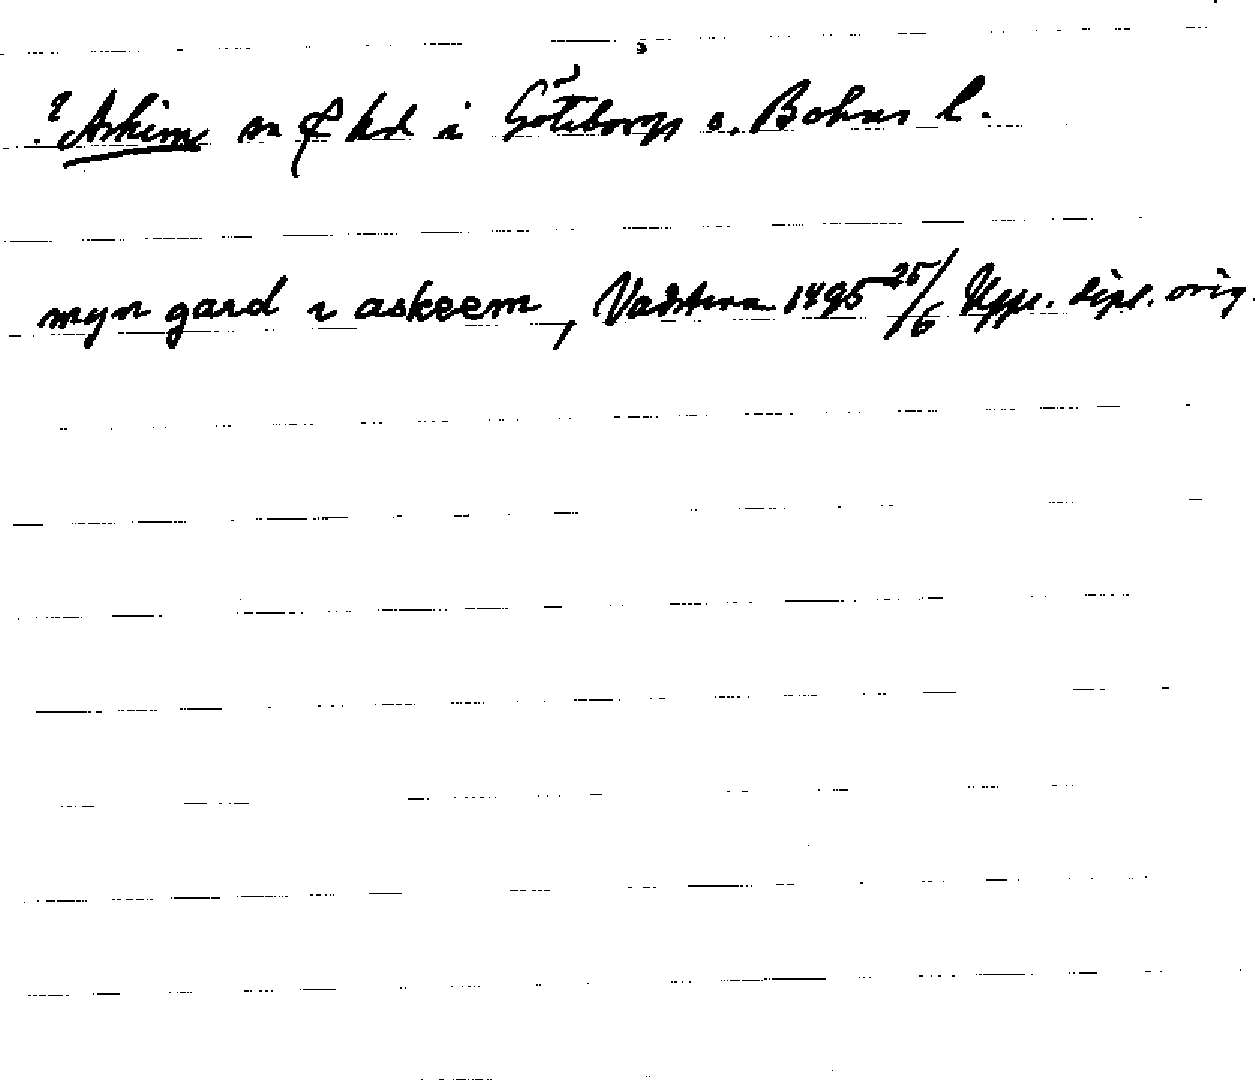 ? Askim sn & hd i Göteborgs o. Bohus l.
myn gard i askeem, Vadstena 1495 25/6 Upps. dipl. orig.